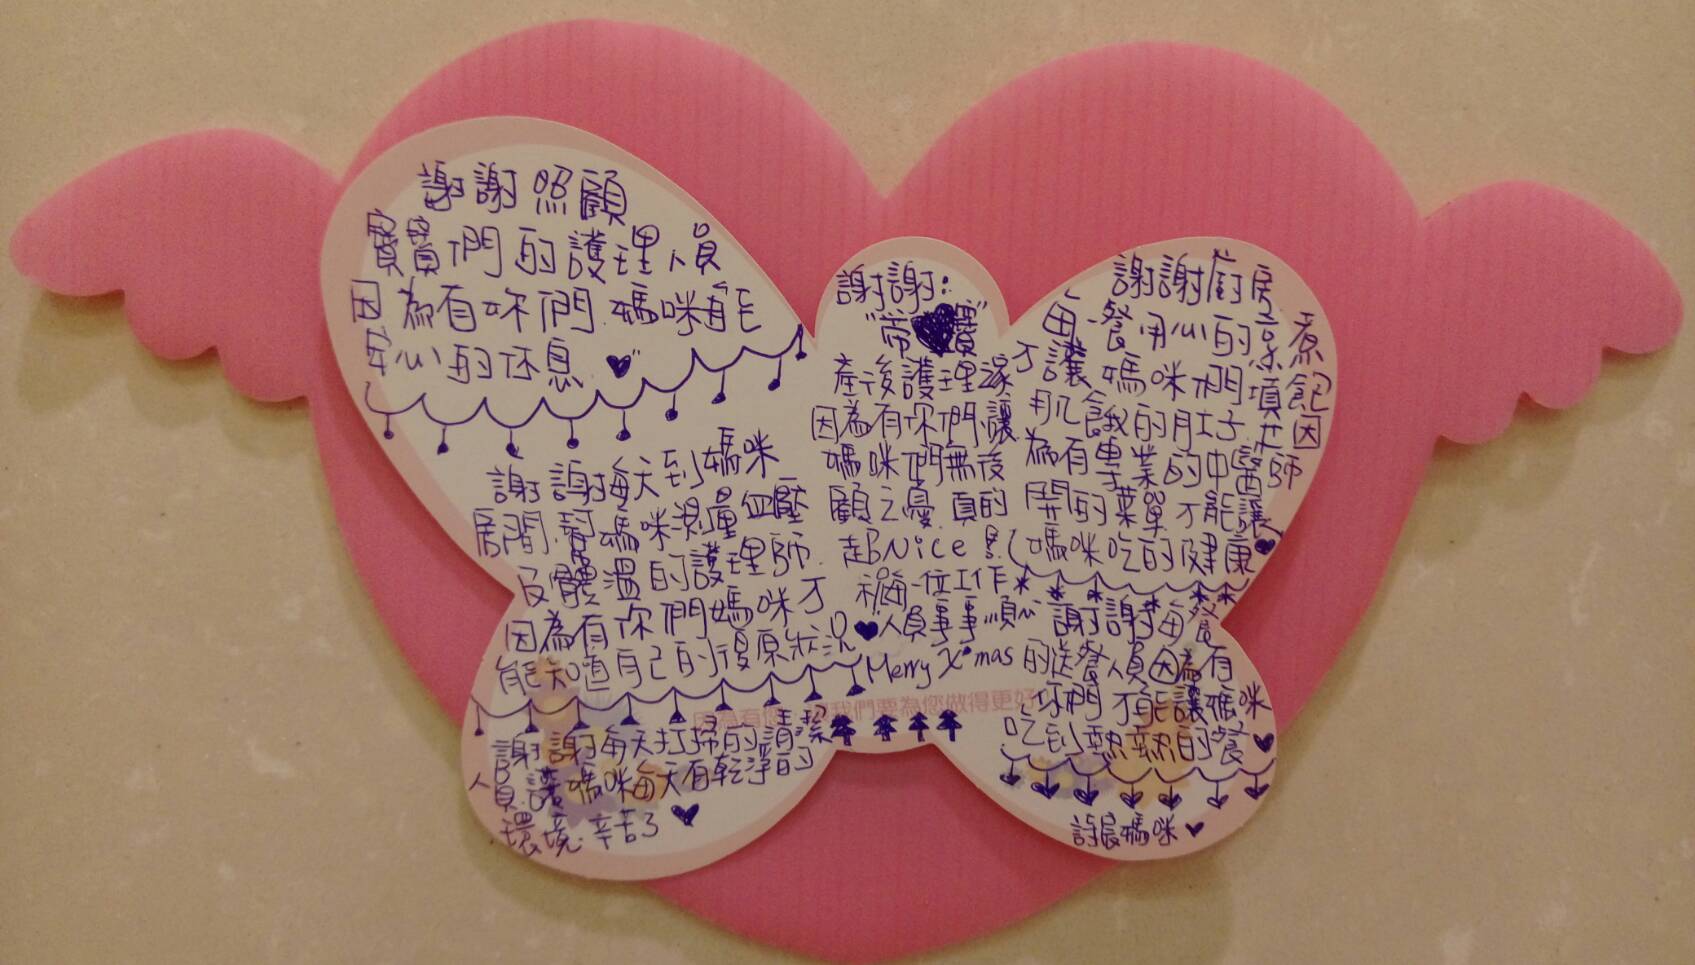 謝謝照顧
寶寶們的護理人員
因為有妳們.媽咪能
安心的休息
謝謝每天到媽咪
房間.幫媽咪測量血壓
及體溫的護理師.
因為有你們媽咪才
能知道自己的復原狀況
謝謝每天打掃的清潔
人員.讓媽咪每天有乾淨的
環境.辛苦了
謝謝:
寶"
產後護理
因為有你們.讓
媽咪們無後
顧之憂.真的
超Nice
祝每一位工作
人員事事順心
Merry X'mas
因為有您 我們要為您做得更好
謝謝廚房
每一餐用心的烹煮
才讓媽咪們
的月子.因
為有專業的中醫師
開的菜單才能讓
媽咪吃的健康
謝謝每餐
的送餐人員因為有
妳們才能讓媽咪
吃到熱熱的餐
媽咪